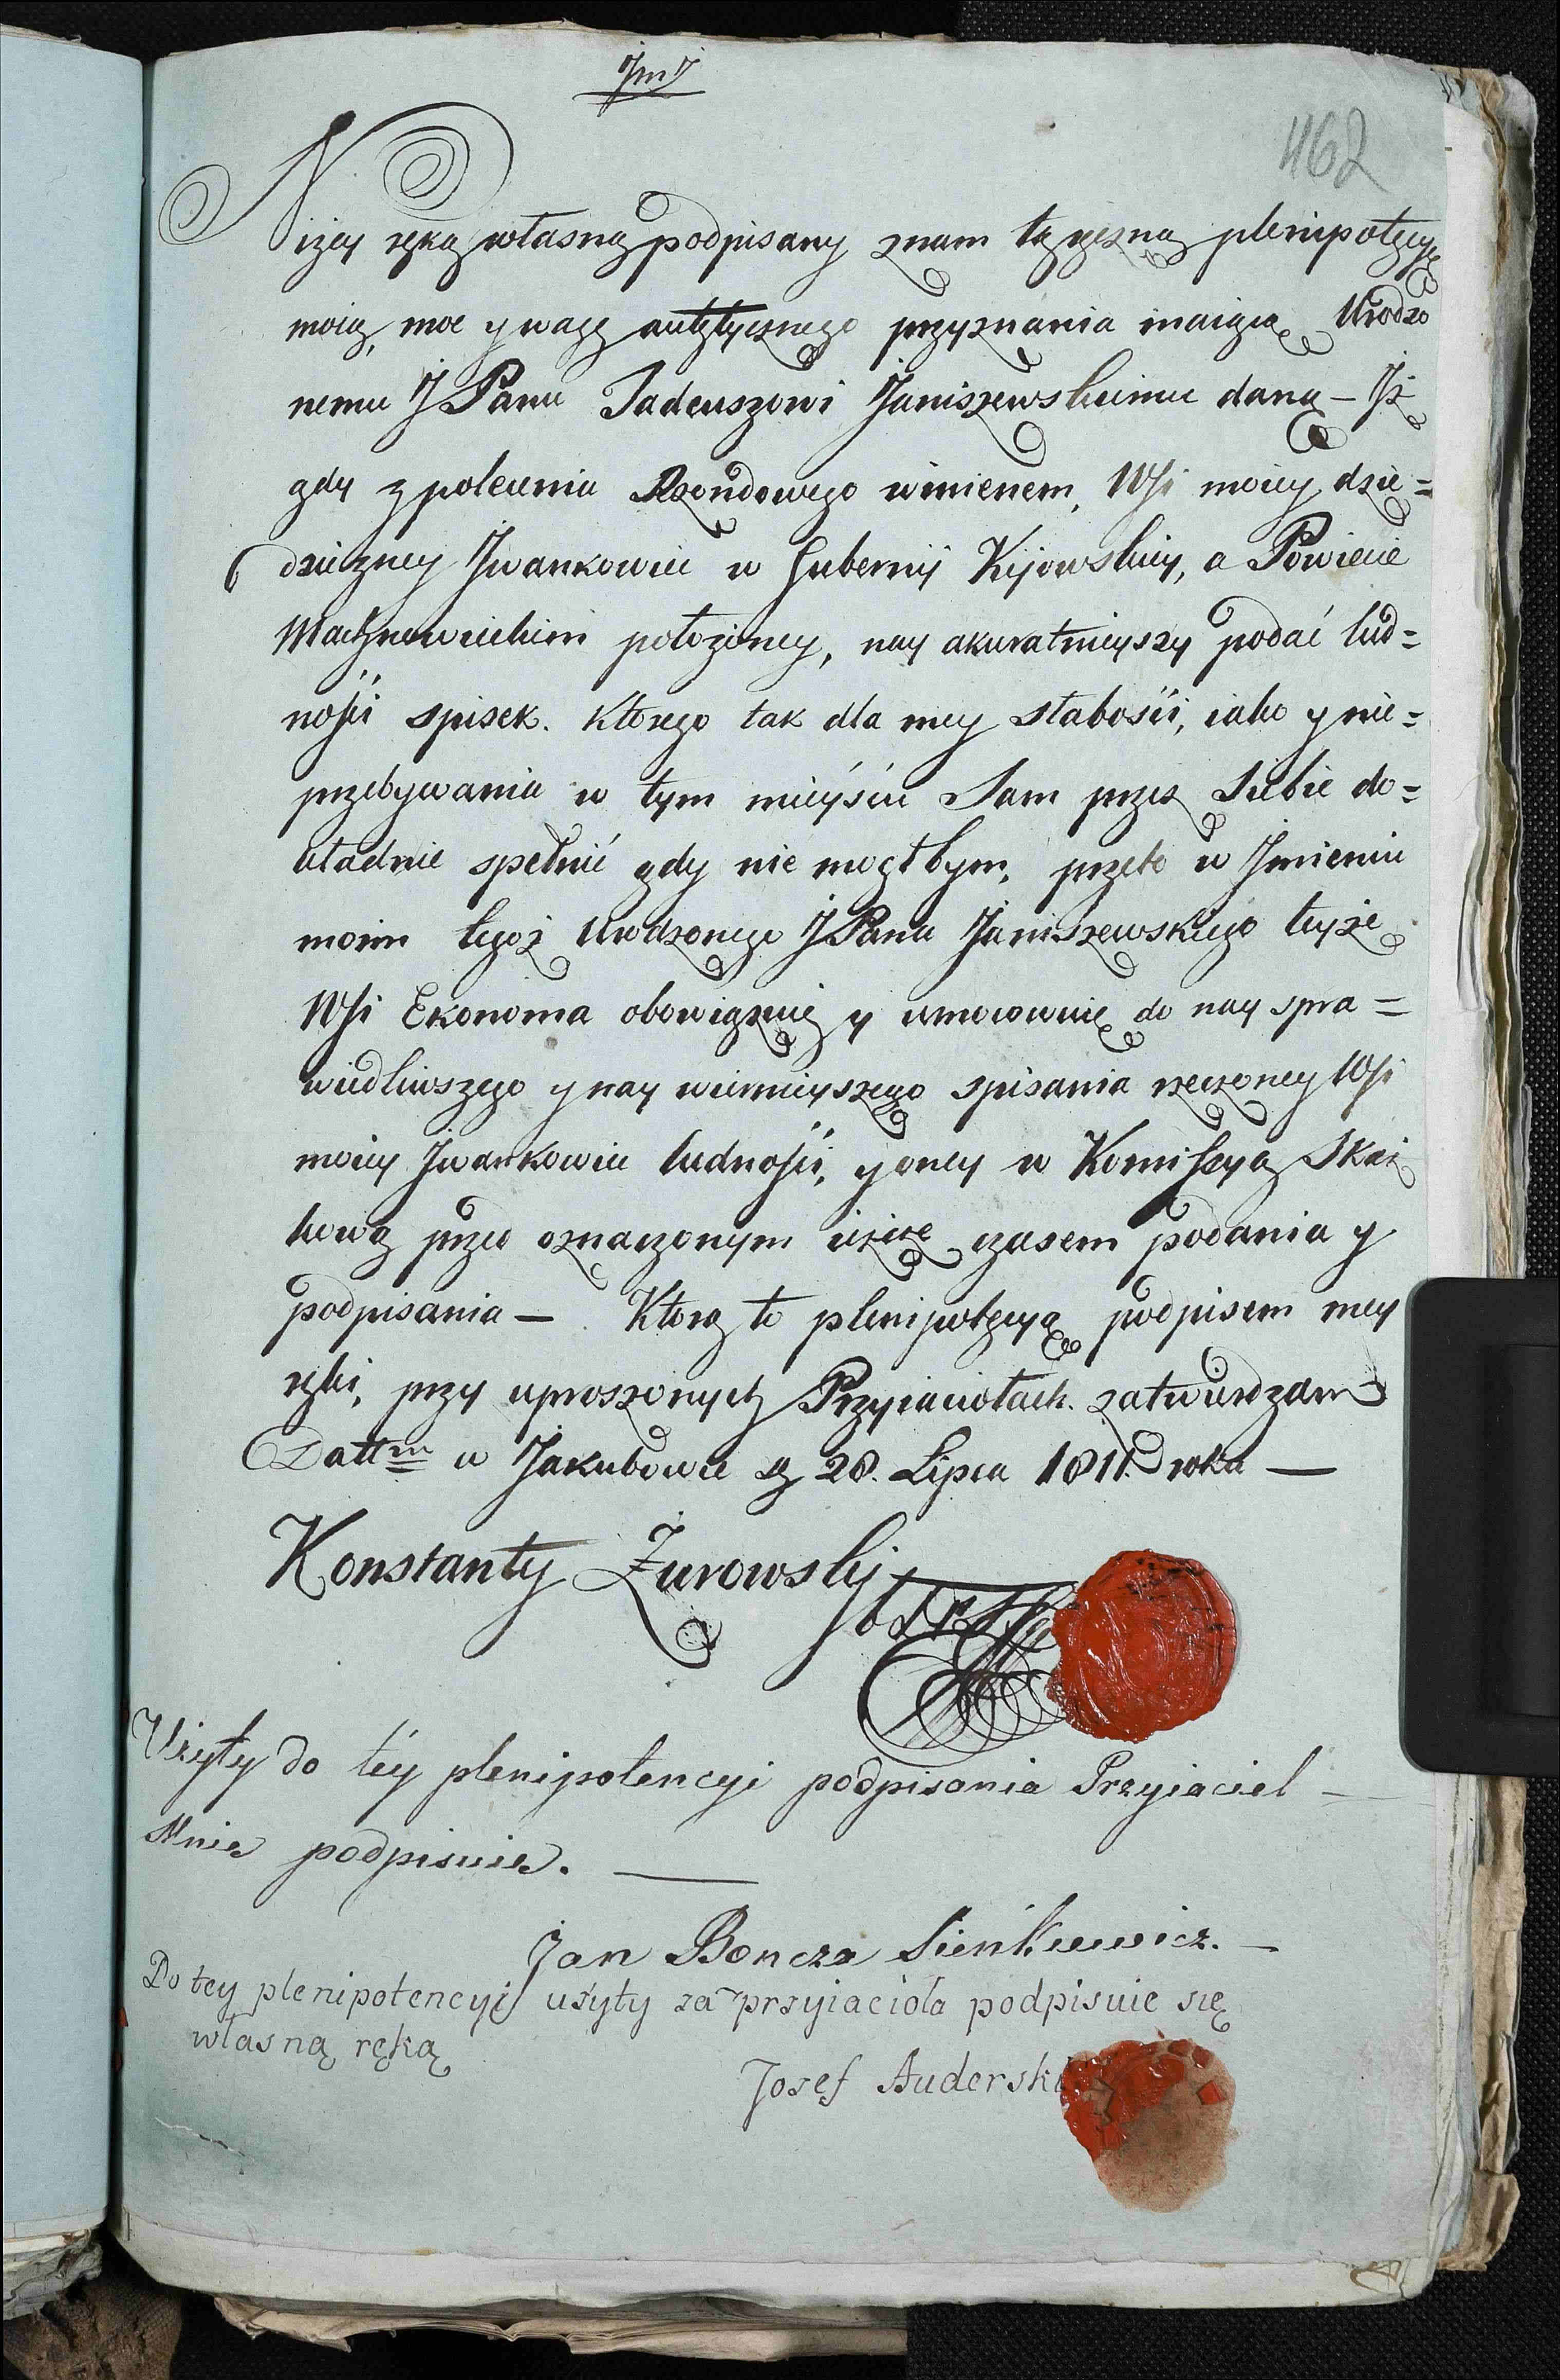 JmJ
462
Niżey ręką własną podpisany znam tą ręczną plenipotęcyę
moią, moc y wagę autętycznego przyznania maiącą Urodzo
nemu JPanu Tadeuszowi Janiszewskiemu daną – Jż
gdy z polecenia Rzondowego winienem, Wsi moiey dzie=
dziczney Jwankowiec w Gubernij Kijowskiey, a Powiecie
Machnowieckim położoney, nay akuratnieyszy podać lud=
ności spisek. Ktorego tak dla mey słabości, iako y nie=
przebywania w tym mieyścu Sam przez Siebie do=
kładnie spełnić gdy nie mogł bym, przeto w Jmieniu
moim tegoż Urodzonego JPana Janiszewskiego teyże
Wsi Ekonoma obowiązuię y umocowuię do nay spra=
wiedliwszego y nay wiernieyszego spisania rzeczoney Wsi
moiey Jwankowiec ludności, y oney w Komissyą Skar
bową przed oznaczonym czasem podania y
podpisania – Ktorą to plenipotęcyą podpisem mey
ręki, przy uproszonych Przyiaciołach zatwierdzam
Dattm w Jakubowce d 28. Lipca 1811. roku —
Konstanty Żurowskij
Użyty do téy plenipotencyi podpisania Przyiaciel –
Mnie podpisuie. —
Jan Boncza Sieńkiewicz. –
Do tey plenipotencyi użyty za przyiacióla podpisuie się
własną ręką
Josef Auderski